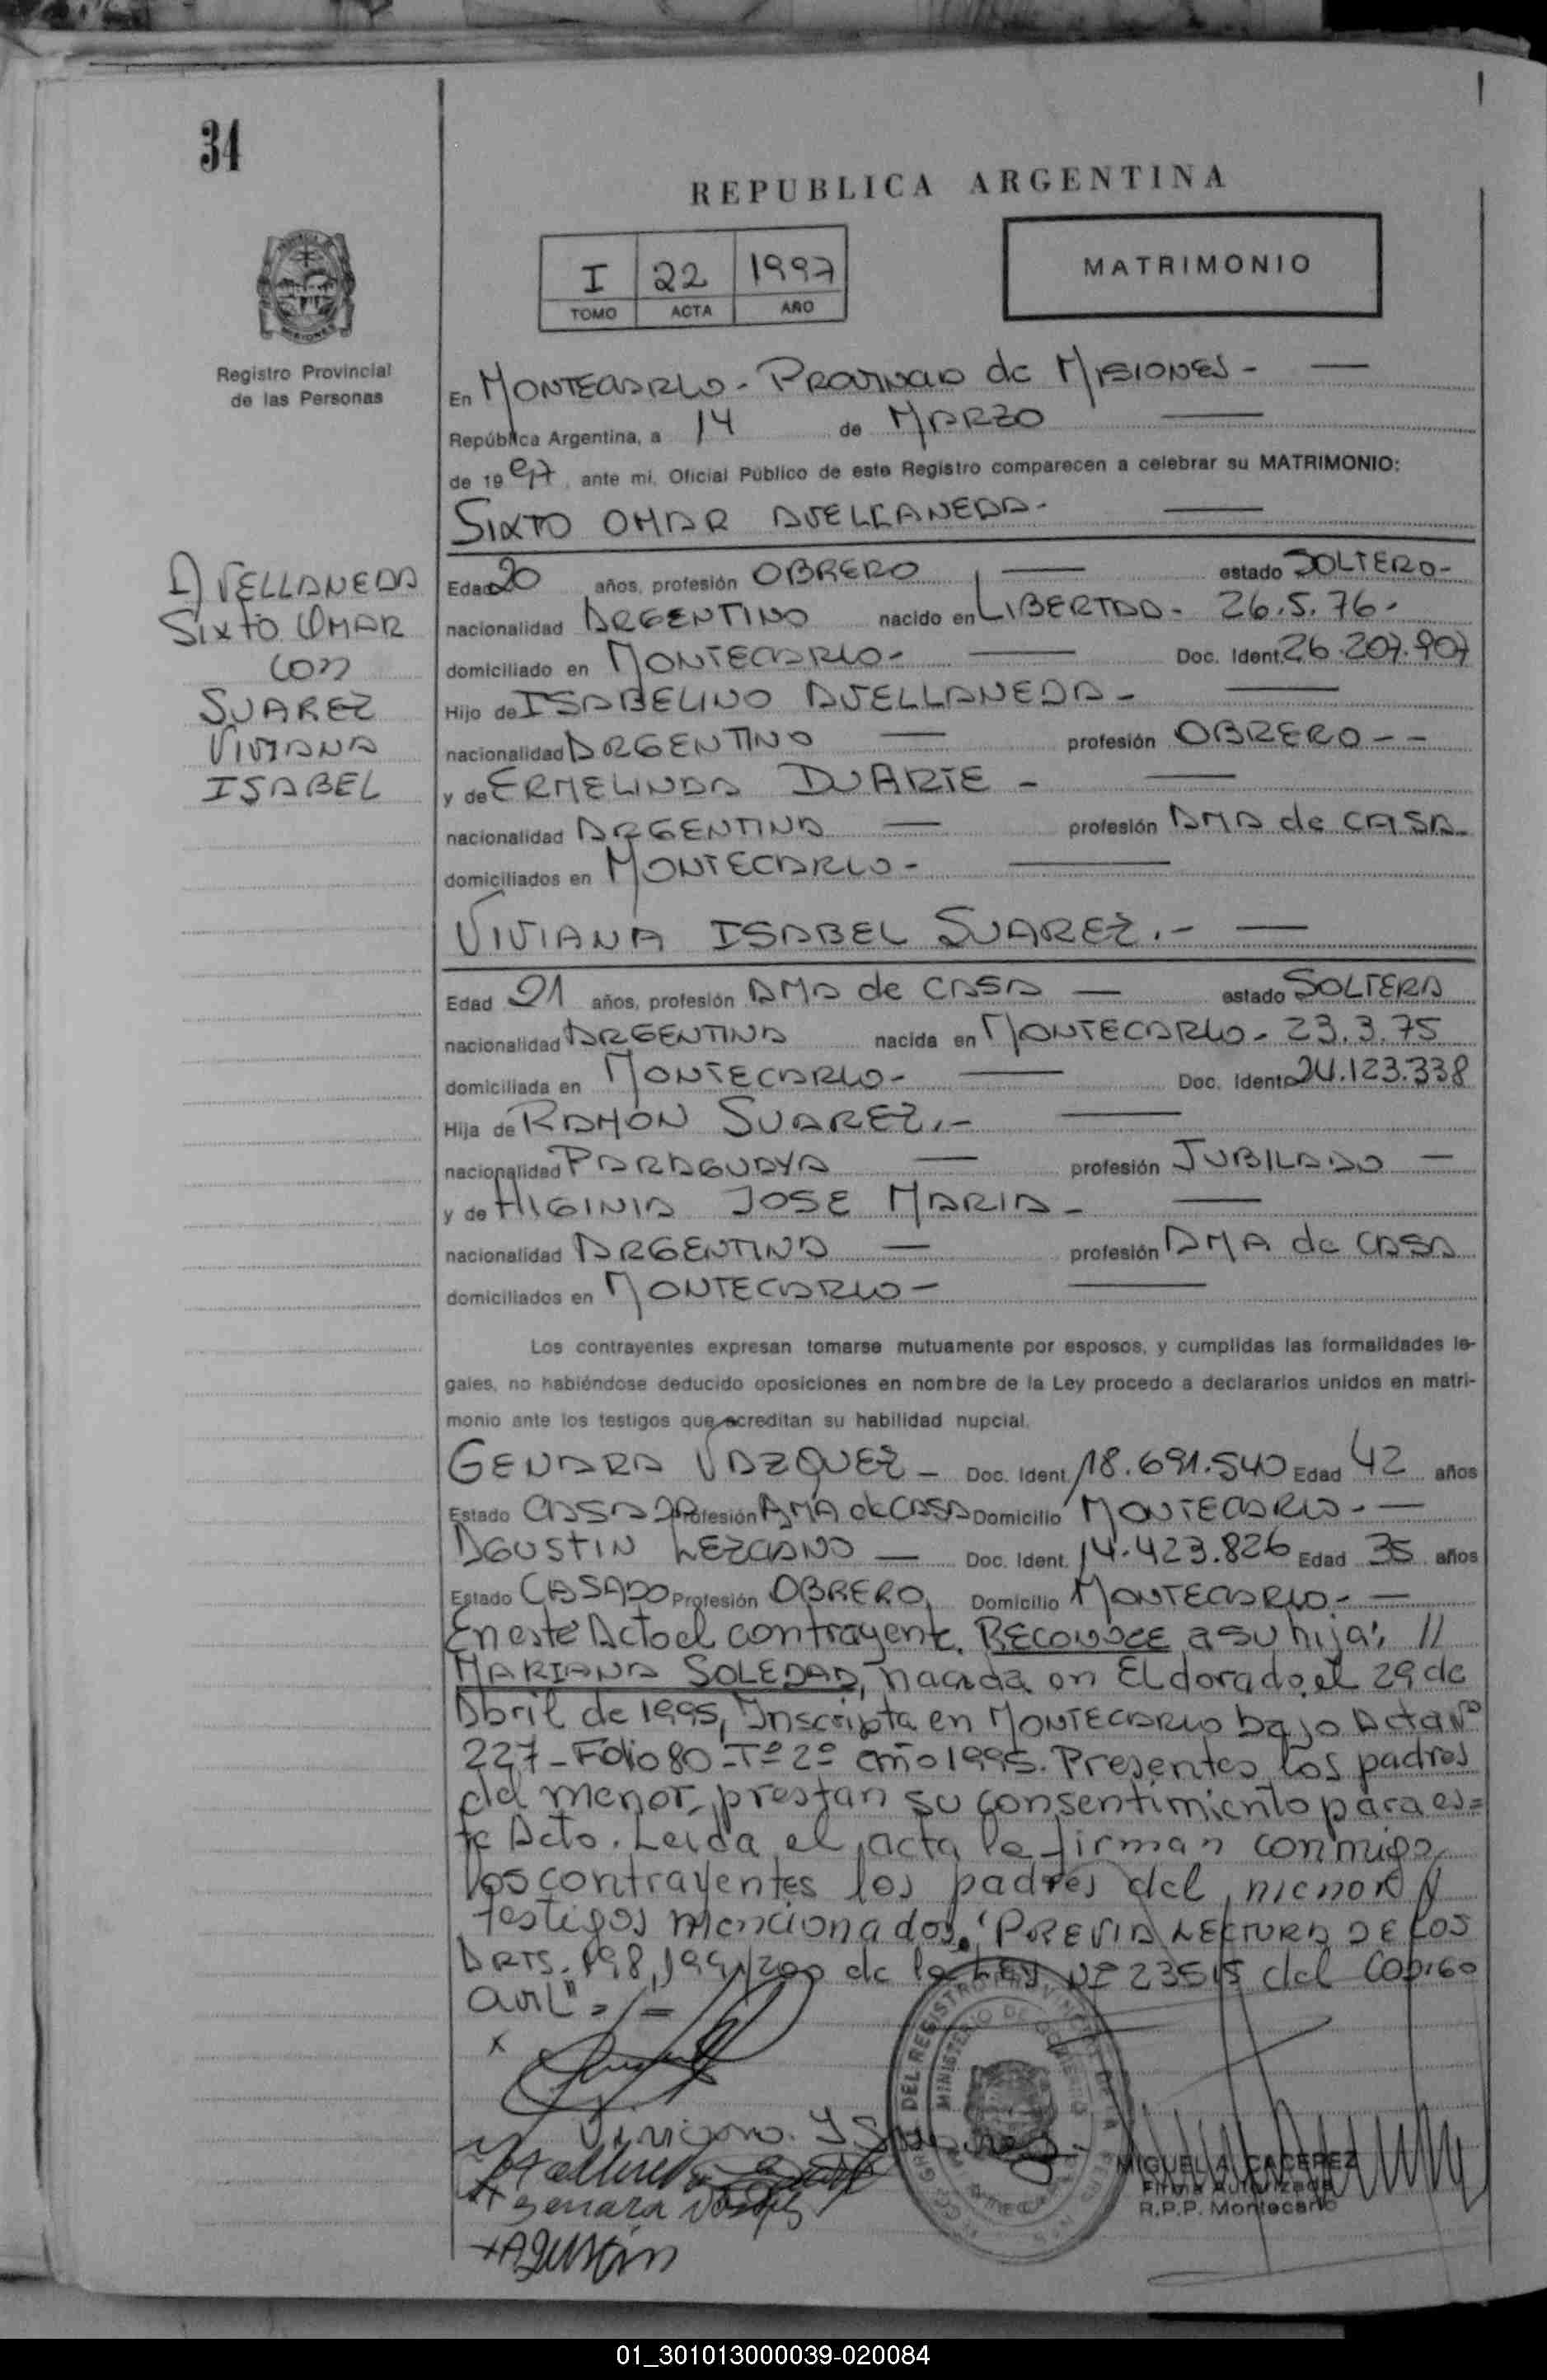 34
REPUBLICA ARGENTINA
I 22 1997
TOMO ACTA AÑO
MATRIMONIO
Registro Provincial
de las Personas
En MONTECARLO - PROVINCIA de MISIONES -
República Argentina, a 14 de MARZO
de 1997, ante mi, Oficial Público de este Registro comparecen a celebrar su MATRIMONIO:
SIXTO OMAR AVELLANEDA -
AVELLANEDA
SIXTO OMAR
CON
SUAREZ
VIVIANA
ISABEL
Edad 20 años, profesión OBRERO estado SOLTERO -
nacionalidad ARGENTINO nacido en LIBERTAD - 26.5.76 -
domiciliado en MONTECARLO - Doc. Ident. 26.207.907
Hijo de ISABELINO AVELLANEDA -
nacionalidad ARGENTINO profesión OBRERO - -
y de ERMELINDA DUARTE -
nacionalidad ARGENTINA profesión AMA de CASA
domiciliados en MONTECARLO -
VIVIANA ISABEL SUAREZ . -
Edad 21 años, profesión AMA de CASA estado SOLTERA
nacionalidad ARGENTINA nacida en MONTECARLO - 23.3.75
domiciliada en MONTECARLO - Doc. Ident. 24.123.338
Hija de RAMON SUAREZ . -
nacionalidad PARAGUAYA profesión JUBILADO -
y de HIGINIA JOSE MARIA -
nacionalidad ARGENTINA profesión AMA de CASA
domiciliados en MONTECARLO -
Los contrayentes expresan tomarse mutuamente por esposos, y cumplidas las formalidades le-
gales, no habiéndose deducido oposiciones en nombre de la Ley procedo a declararlos unidos en matri-
monio ante los testigos que acreditan su habilidad nupcial.
GENARA VAZQUEZ - Doc. Ident. 18.691.540 Edad 42 años
Estado CASADA Profesión AMA de CASA Domicilio MONTECARLO - -
AGUSTIN LEZCANO - Doc. Ident. 14.423.826 Edad 35 años
Estado CASADO Profesión OBRERO Domicilio MONTECARLO - -
En este Acto el contrayente RECONOCE a su hija: //
MARIANA SOLEDAD, nacida en Eldorado el 29 de
Abril de 1995, Inscripta en MONTECARLO bajo Acta Nº
227 - Folio 80 - Tº 2º año 1995. Presentes los padres
del menor prestan su consentimiento para es=
te Acto. Leida el acta la firman conmigo
los contrayentes los padres del menor y
testigos mencionados. "PREVIA LECTURA DE LOS
ARTS. 198, 199, 200 de la LEY Nº 23515 del CODIGO
CIVIL" = / =
Genara
+ Agustin
MIGUEL A. CACEREZ
Firma Autorizada
R.P.P. Montecarlo
01_301013000039-020084